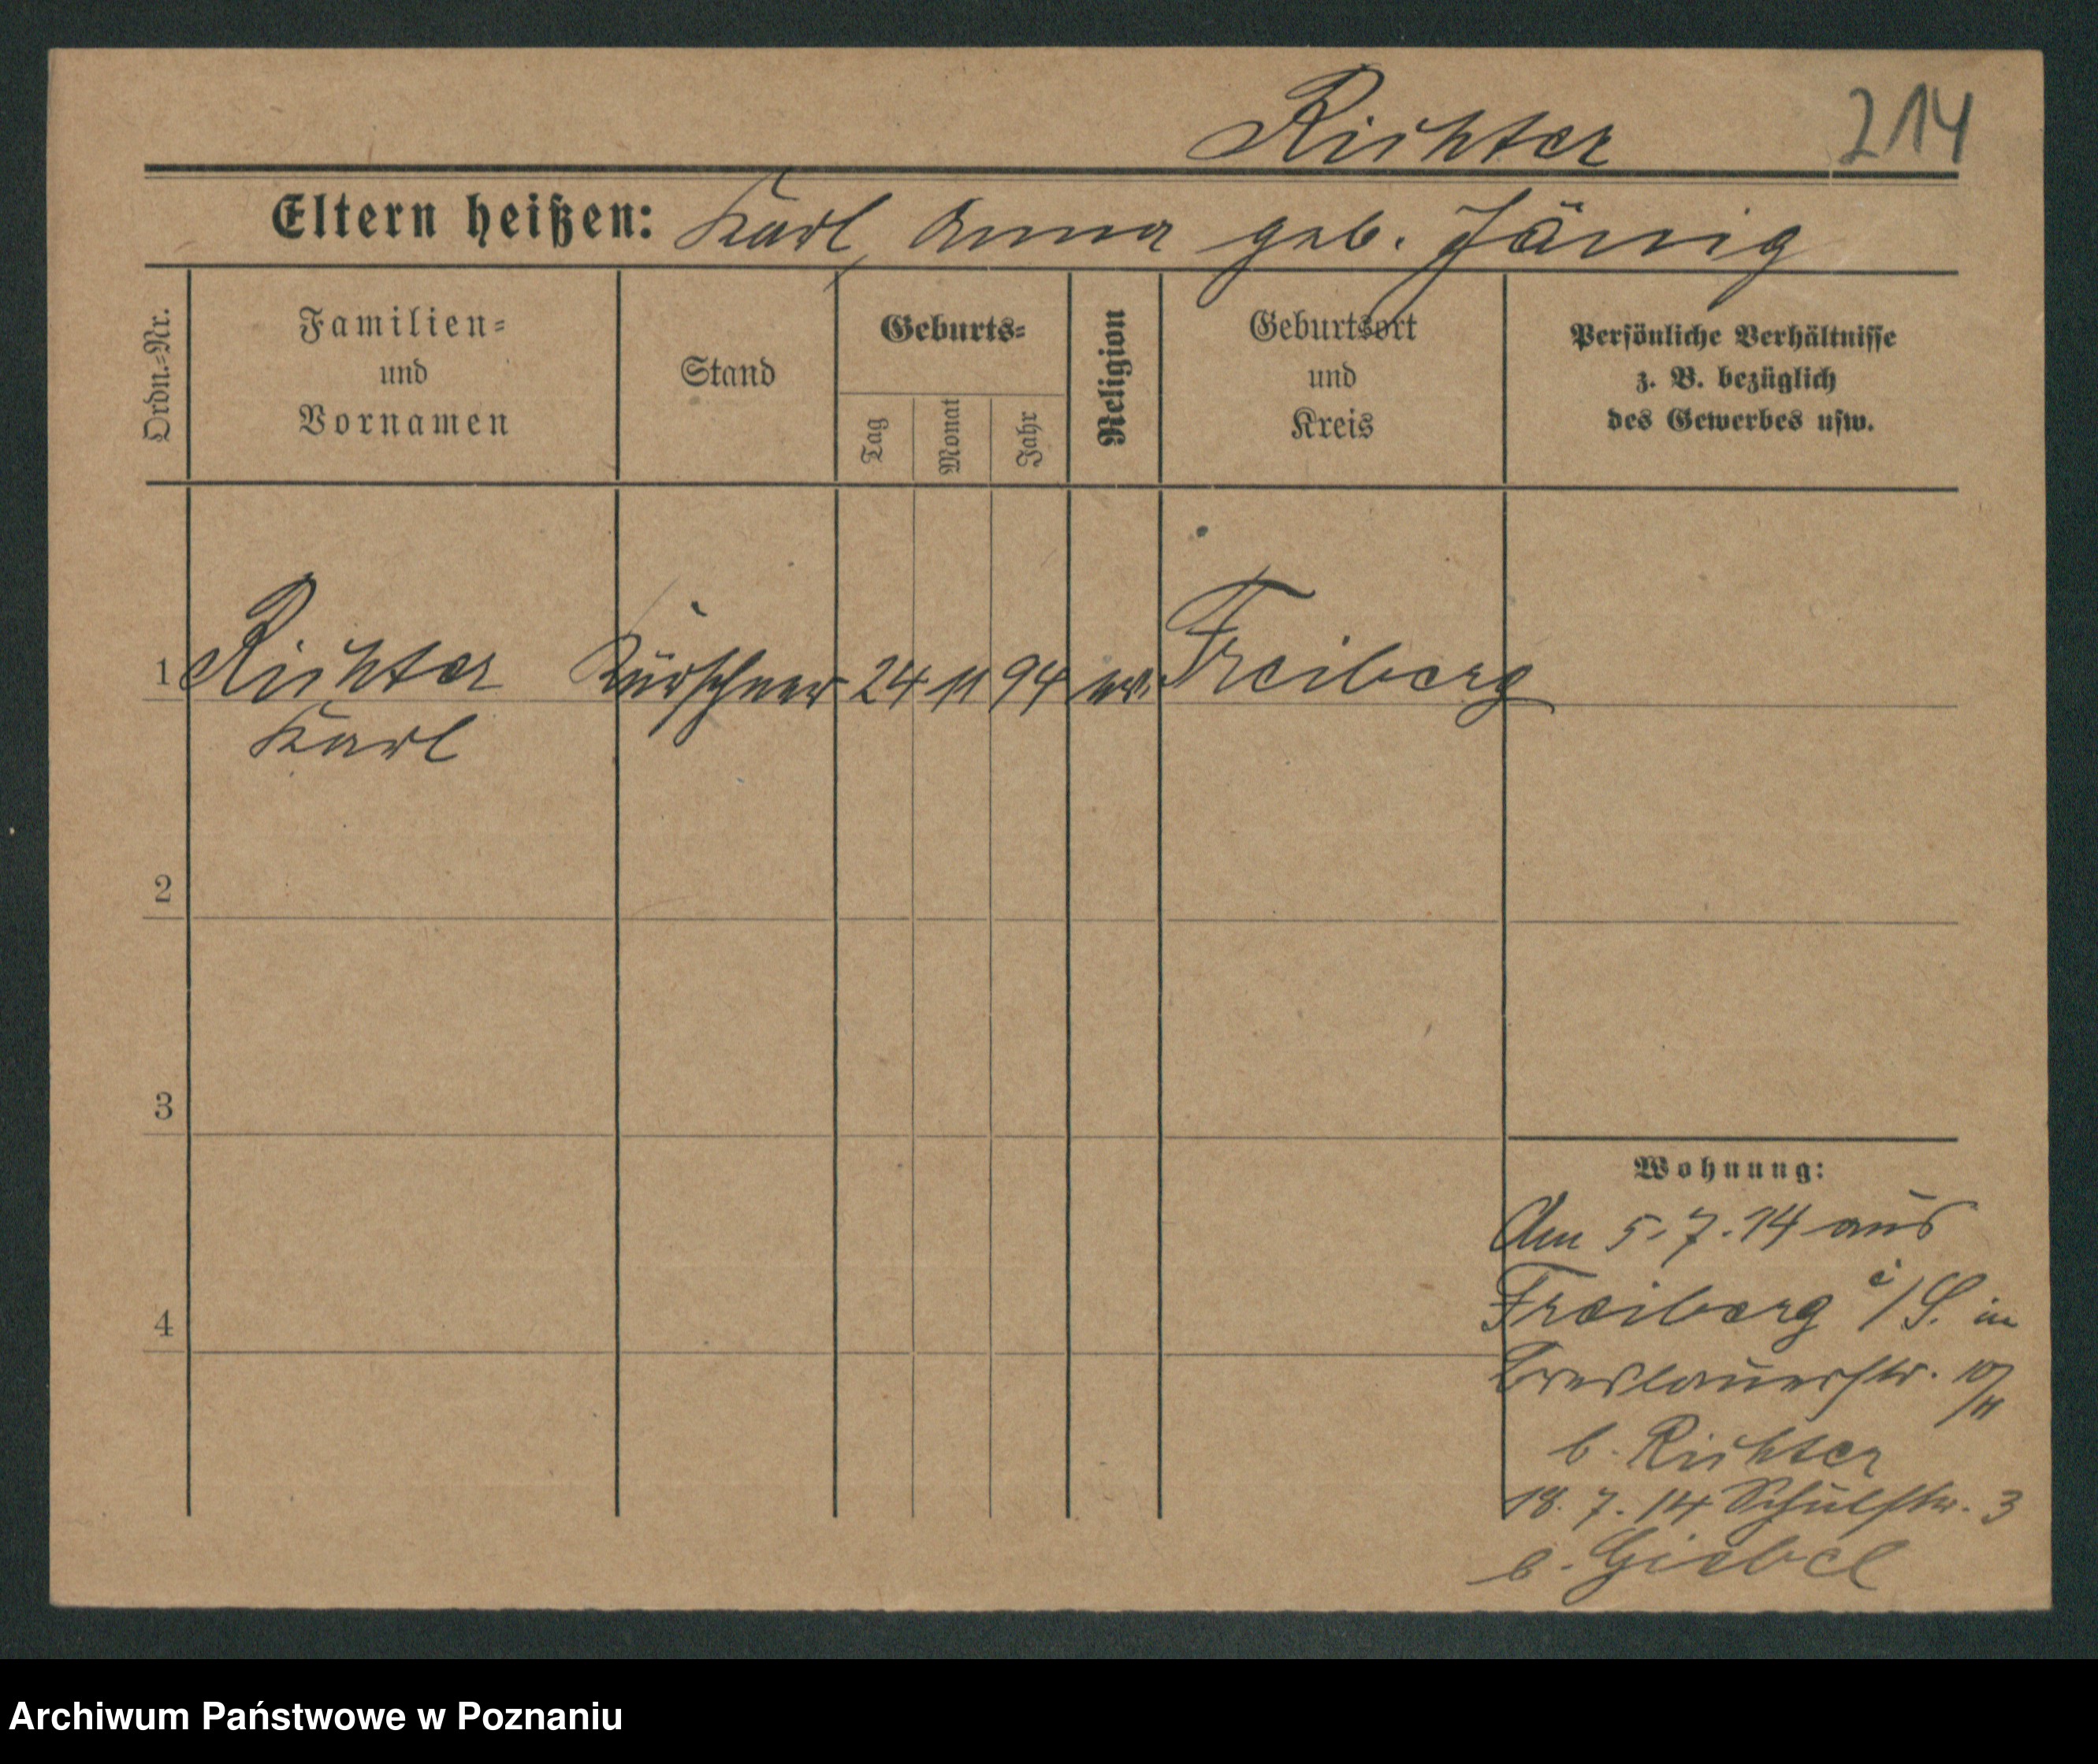 Richter 214
Eltern heißen: Karl, Anna geb. Jänig
Ordn.-Nr.
Familien-
und
Vornamen
Stand
Geburts-
Tag
Monat
Jahr
Religion
Geburtsort
und
Kreis
Persönliche Verhältnisse
z. B. bezüglich
des Gewerbes usw.
1 Richter Kürschner 24 11 94 ev. Freiberg
Karl
2
3
4
Wohnung:
Am 5.7.14 aus
Freiberg i/S. in
Breslauerstr. 10/11
b. Richter
18.7.14 Schulstr. 3
b. Giebel
Archiwum Państwowe w Poznaniu